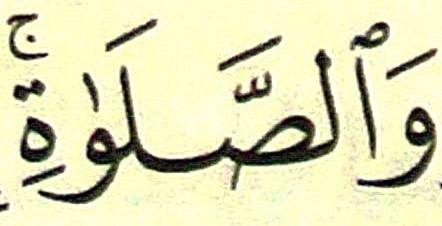 وَٱلصَّلَوٰةِۚ